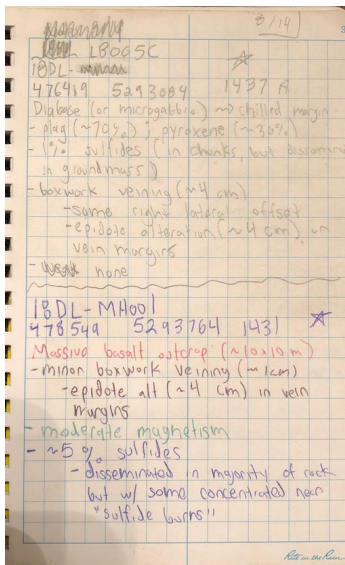 8/14
LB065C
18DL-
476419 5293084 1437 A
Diabase (or microgabbro) ~> chilled margin
- plag (~70%) : pyroxene (~30%)
- 1% sulfides (in chunks, but disseminated
in groundmass)
- boxwork veining (~4 cm)
- some right lateral offset
- epidote alteration (~4 cm) in
vein margins
- none
18DL-MH001
478549 5293764 1431
Massive basalt outcrop (~10x10 m)
- minor boxwork veining (~1cm)
- epidote alt (~4 cm) in vein
margins
- moderate magnetism
- ~5% sulfides
- disseminated in majority of rock
but w/ some concentrated near
"sulfide burns"
Rite in the Rain